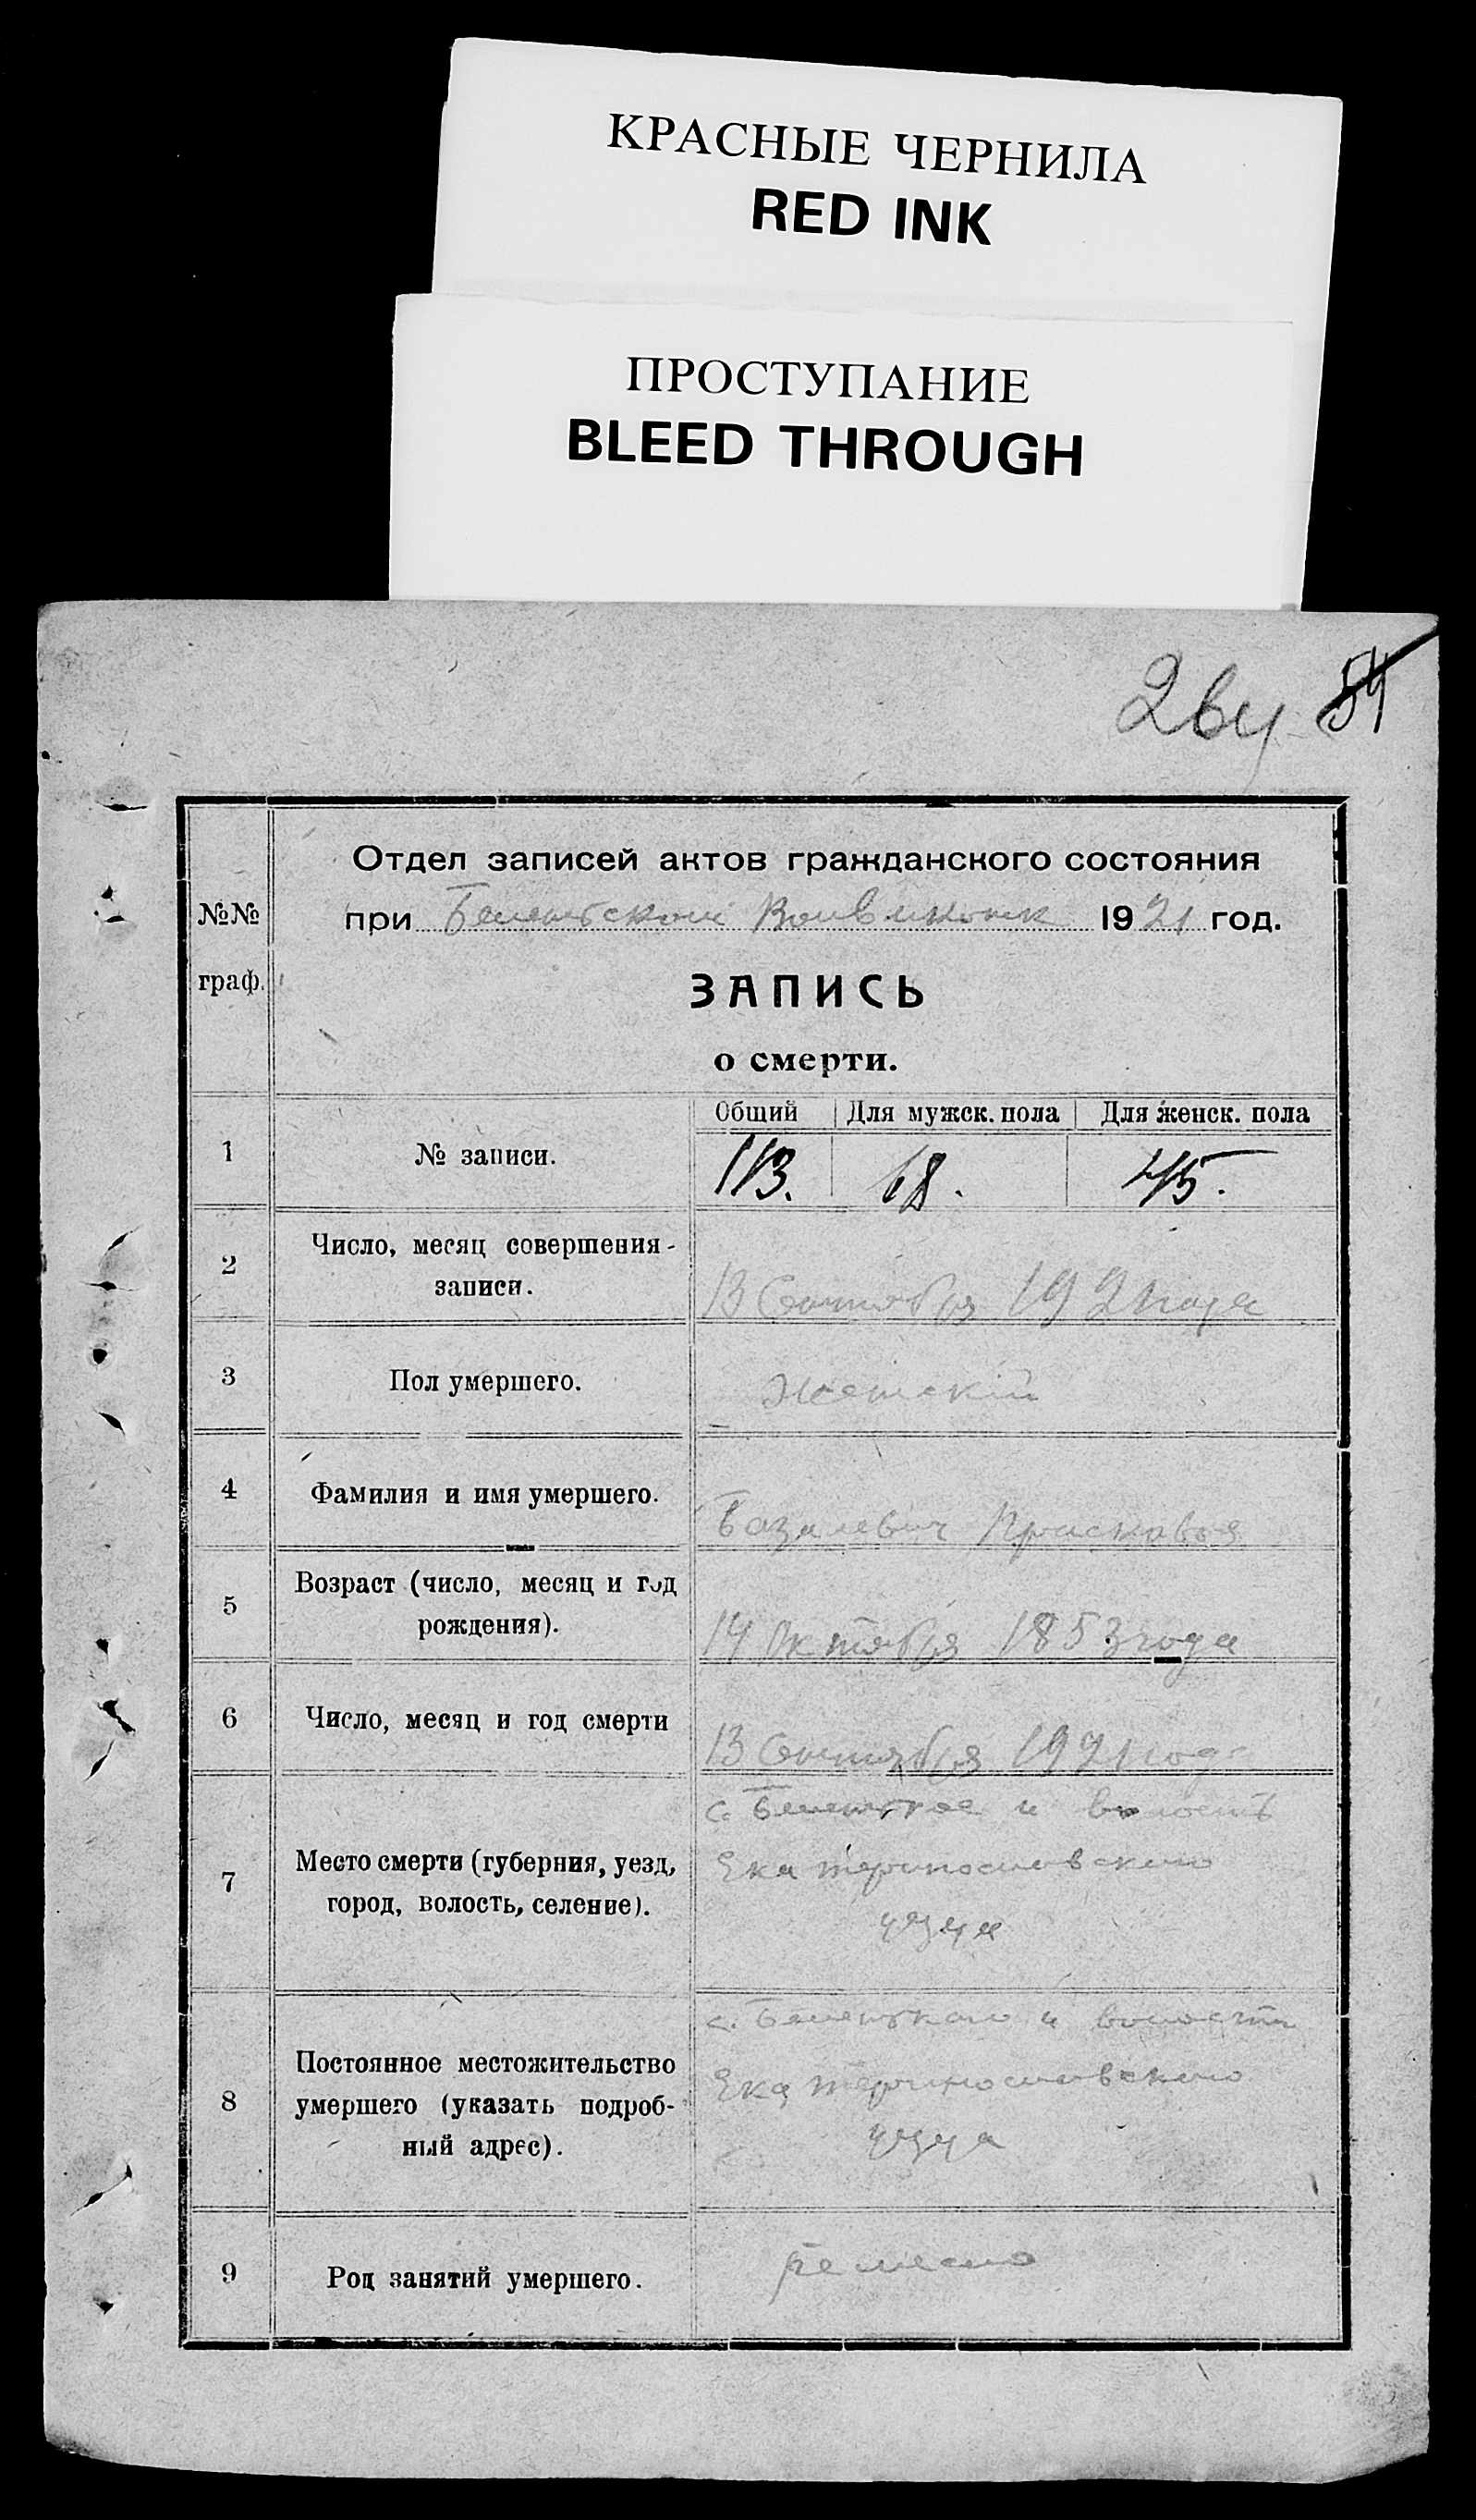 КРАСНЫЕ ЧЕРНИЛА
RED INK
ПРОСТУПАНИЕ
BLEED THROUGH
54
Отдел записей актов гражданского состояния
№№
при 1921 год.
граф.
ЗАПИСЬ
о смерти.
Общий Для мужск. пола Для женск. пола
1 № записи. 113. 68. 45.
2 Число, месяц совершения
записи. 13 Сентября 1921 года
3 Пол умершего. Женский
4 Фамилия и имя умершего. Базилевич Прасковья
5 Возраст (число, месяц и год
рождения). 14 Октября 1853 года
6 Число, месяц и год смерти 13 Сентября 1921 года
с. и волость
7 Место смерти (губерния, уезд,
город, волость, селение). Екатеринославского
уезда
с. и волости
8 Постоянное местожительство
умершего (указать подроб- Екатеринославского
ный адрес). уезда
9 Род занятий умершего. ремесло